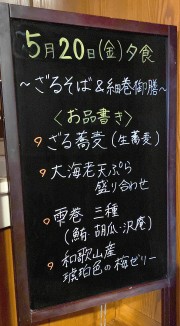 5月20日(金)夕食
～ざるそば&細巻御膳～
〈お品書き〉
ざる蕎麦(生蕎麦)
大海老天ぷら
盛り合わせ
雫巻 三種
(鮪・胡瓜・沢庵)
和歌山産
琥珀色の梅ゼリー